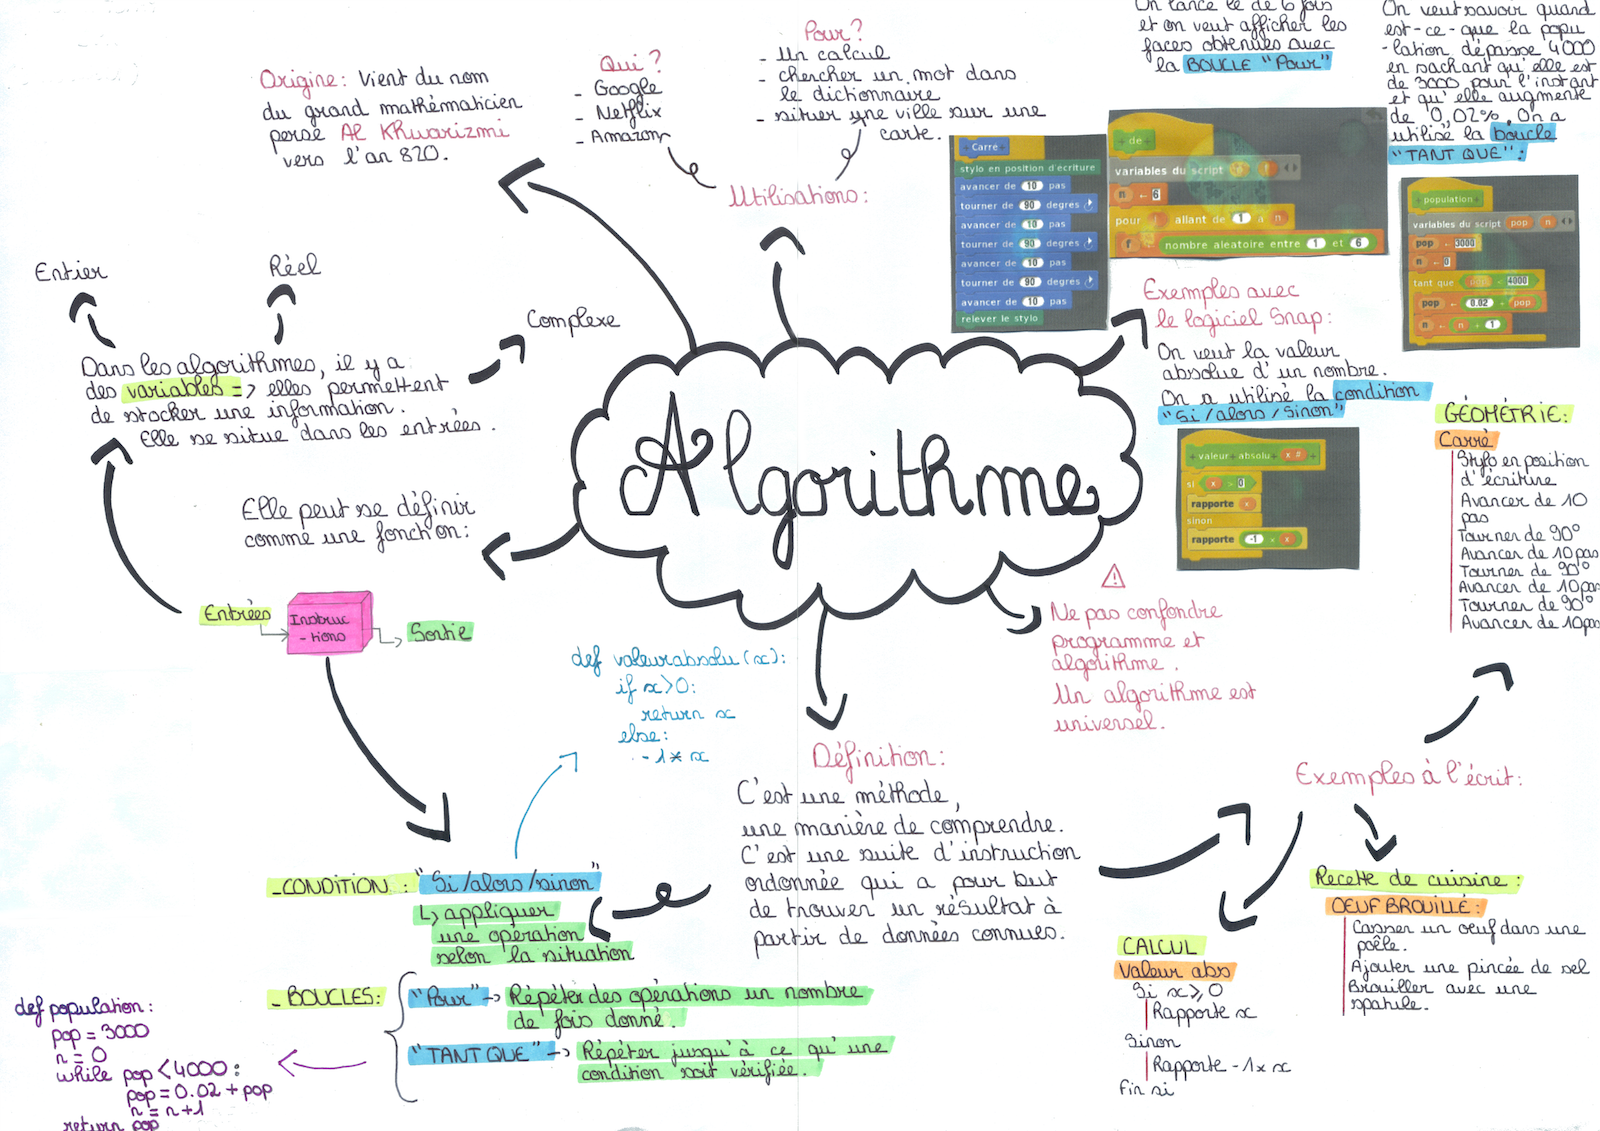 Algorithme
Origine: Vient du nom
du grand mathématicien
perse Al Khwarizmi
vers l'an 820.
Qui ?
- Google
- Netflix
- Amazon
Pour ?
- Un calcul
- chercher un mot dans
le dictionnaire
- situer une ville sur une
carte.
Utilisations:
On lance le dé 6 fois
et on veut afficher les
faces obtenues avec
la BOUCLE "Pour"
On veut savoir quand
est-ce-que la popu
-lation dépasse 4000
en sachant qu'elle est
de 3000 pour l'instant
et qu'elle augmente
de 0,02%. On a
utilisé la boucle
"TANT QUE":
Carré
stylo en position d'écriture
avancer de 10 pas
tourner de 90 degrés
avancer de 10 pas
tourner de 90 degrés
avancer de 10 pas
tourner de 90 degrés
avancer de 10 pas
relever le stylo
de
variables du script
n ← 6
pour allant de 1 à n
f nombre aléatoire entre 1 et 6
population
variables du script pop n
pop ← 3000
n ← 0
tant que < 4000
pop ← 0.02 pop
n ← n + 1
Exemples avec
le logiciel Snap:
On veut la valeur
absolue d'un nombre.
On a utilisé la condition
"Si/alors/sinon"
valeur absolu x #
si x > 0
rapporte x
sinon
rapporte -1 × x
GÉOMÉTRIE:
Carré
Stylo en position
d'écriture
Avancer de 10
pas
Tourner de 90°
Avancer de 10 pas
Tourner de 90°
Avancer de 10 pas
Tourner de 90°
Avancer de 10 pas
Entier
Réel
Complexe
Dans les algorithmes, il y a
des variables => elles permettent
de stocker une information.
Elle se situe dans les entrées.
Elle peut se définir
comme une fonction:
Entrées
Instruc
-tions
Sortie
def valeurabsolu(x):
if x>0:
return x
else:
-1* x
Ne pas confondre
programme et
algorithme.
Un algorithme est
universel.
Définition:
C'est une méthode,
une manière de comprendre.
C'est une suite d'instruction
ordonnée qui a pour but
de trouver un résultat à
partir de données connues.
Exemples à l'écrit:
Recette de cuisine:
OEUF BROUILLÉ:
Casser un oeuf dans une
poêle.
Ajouter une pincée de sel
Brouiller avec une
spatule.
CALCUL
Valeur abs
Si x ⩾ 0
Rapporte x
Sinon
Rapporte -1 x x
Fin si
- CONDITION: "Si/alors/sinon"
↳ appliquer
une opération
selon la situation
- BOUCLES:
"Pour" -> Répéter des opérations un nombre
de fois donné.
"TANT QUE" -> Répéter jusqu'à ce qu'une
condition soit vérifiée.
def population:
pop = 3000
n = 0
while pop < 4000:
pop = 0.02 + pop
n = n+1
return pop